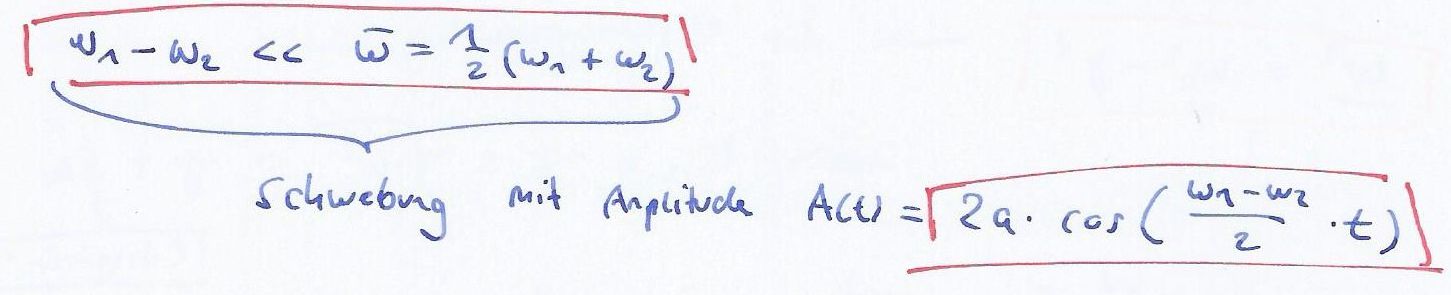 ω₁ − ω₂ << ω̄ = 1/2 (ω₁ + ω₂)
Schwebung mit Amplitude A(t) = 2a · cos( (ω₁ − ω₂)/2 · t )